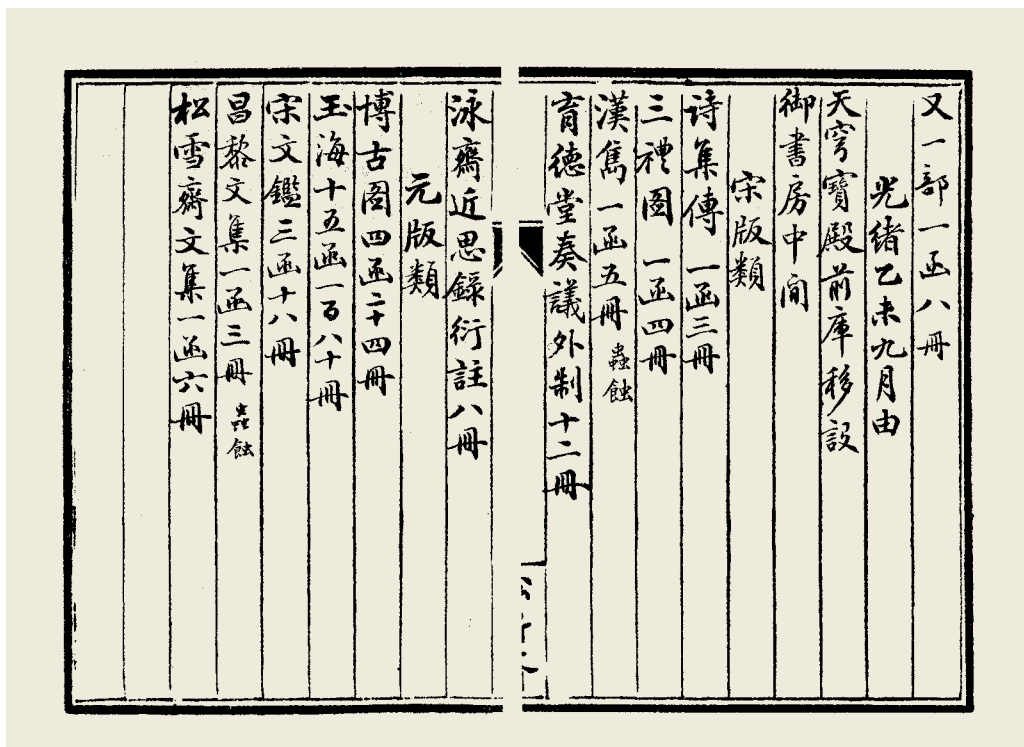 又一部一函八冊
光緒乙未九月由
天穹寶殿前庫移設
御書房中間
宋版類
詩集傳一函三冊
三禮圖一函四冊
漢雋一函五冊 蟲蝕
育德堂奏議外制十二冊
泳齋近思錄衍註八冊
元版類
博古圖四函二十四冊
玉海十五函一百八十冊
宋文鑑三函十八冊
昌黎文集一函三冊 蟲蝕
松雪齋文集一函六冊